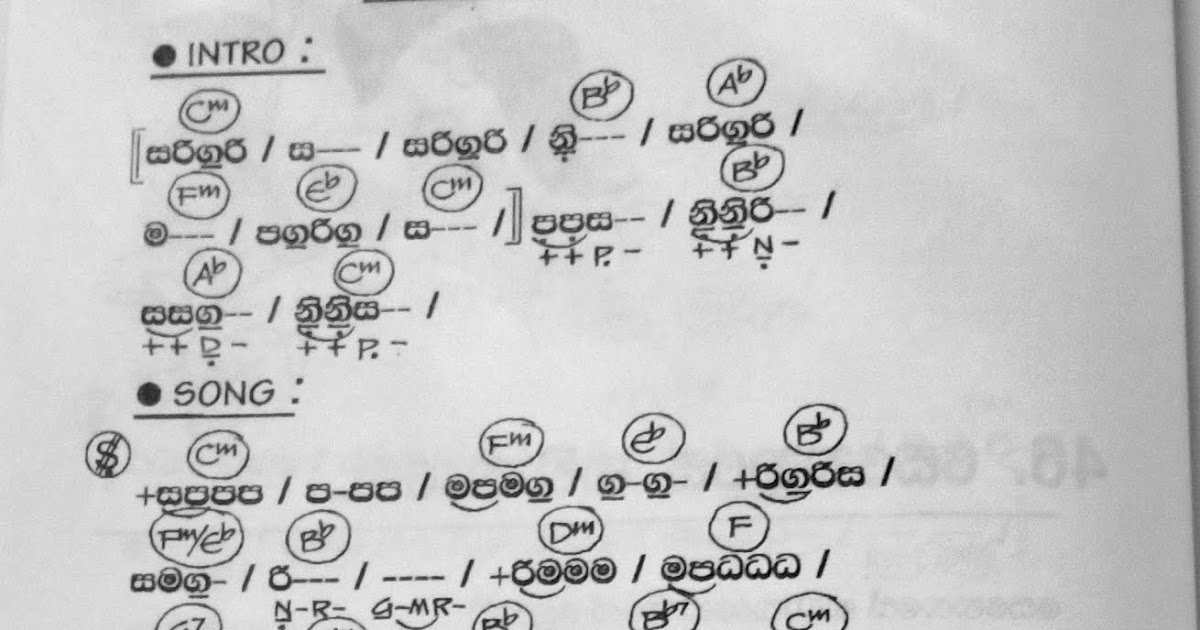 ● INTRO :
Cm B♭ A♭
[සරිගු̱රි / ස--- / සරිගු̱රි / නි̱̣--- / සරිගු̱රි /
Fm E♭ Cm B♭
ම--- / පගු̱රිගු̱ / ස--- /] ප̣ප̣ස-- / නි̱̣නි̱̣රි-- /
++P̣- ++Ṇ̱-
A♭ Cm
සසගු̱-- / නි̱̣නි̱̣ස-- /
++Ḍ̱- ++P̣-
● SONG :
$ Cm Fm E♭ B♭
+සපපප / ප-පප / මපමගු̱ / ගු̱-ගු̱- / +රිගු̱රිස /
Fm/E♭ B♭ Dm F
සමගු̱- / රි--- / ---- / +රිමමම / මපධධධ /
Ṇ̱-R- G̱-MR-
G7 B♭ B♭7 Cm